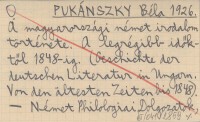 PUKÁNSZKY Béla 1926.
A magyarországi német irodalom
története. A legrégibb idők-
től 1848-ig. (Geschichte der
deutschen Literatur in Ungarn.
Von den ältesten Zeiten bis 1848)
— Német Philologiai Dolgozatok,